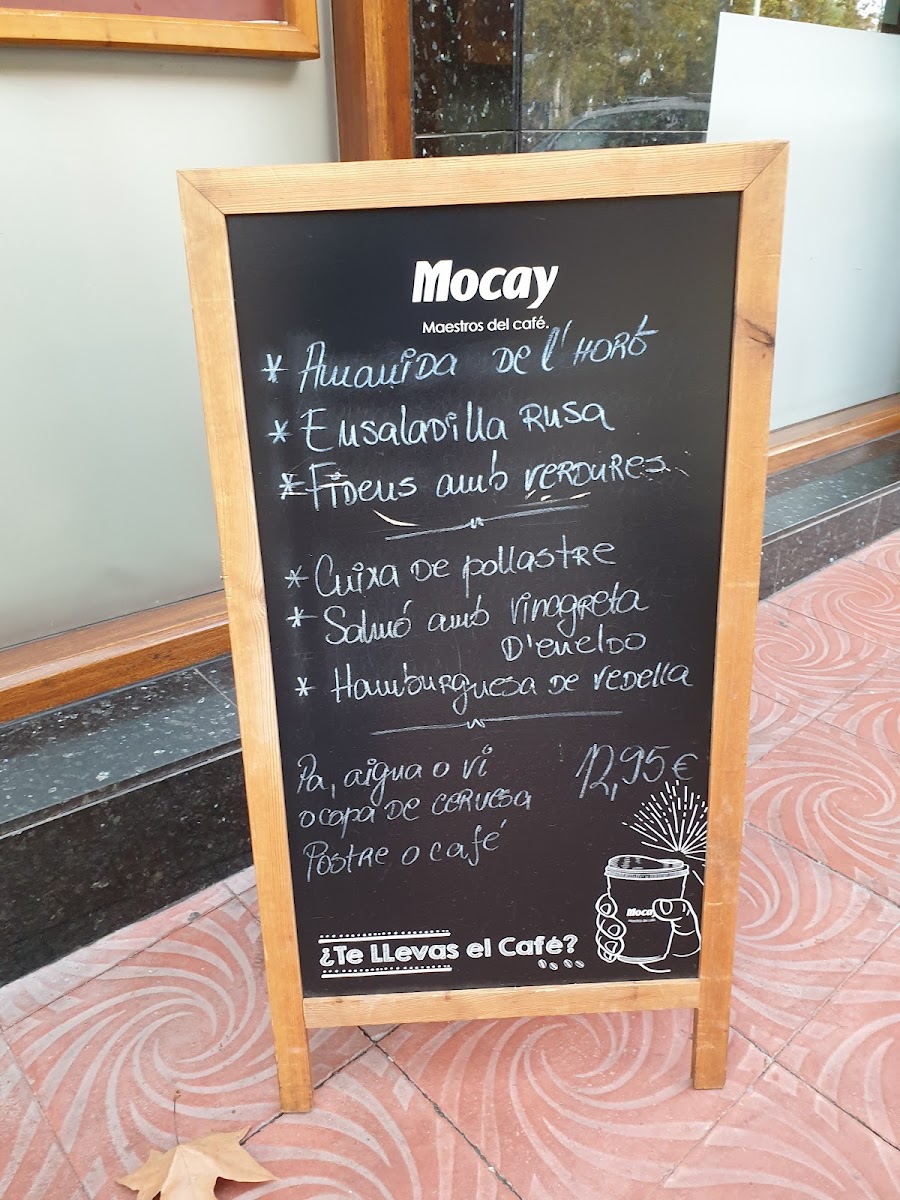 Mocay
Maestros del café.
* Amanida de l'hort
* Ensaladilla rusa
* Fideus amb verdures
* Cuixa de pollastre
* Salmó amb vinagreta
d'eneldo
* Hamburguesa de vedella
Pa, aigua o vi 12,95 €
o copa de cervesa
Postre o café
Mocay
¿Te Llevas el Café?